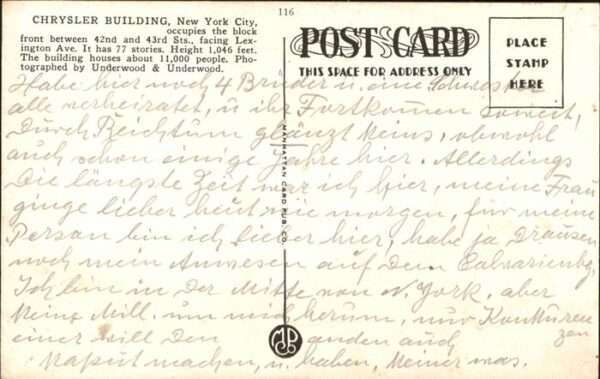 116
CHRYSLER BUILDING, New York City,
occupies the block
front between 42nd and 43rd Sts., facing Lex-
ington Ave. It has 77 stories. Height 1,046 feet.
The building houses about 11,000 people. Pho-
tographed by Underwood & Underwood.
POST CARD
THIS SPACE FOR ADDRESS ONLY
PLACE
STAMP
HERE
MANHATTAN CARD PUB. CO.
Habe hier noch 4 Brüder u. eine Schwester
alle verheiratet, u ihr Fortkomen soweit,
Durch Reichtum glänzt keins, obwohl
auch schon einige Jahre hier. Allerdings
Die längste Zeit war ich hier, meine Frau
ginge lieber heut wie morgen, für meine
Person bin ich lieber hier, habe ja Drausen
noch mein Anwesen auf dem Calvarienbg,
Ich bin in Der Mitte von N. York, aber
keine Mill. um und herum, nur Konkuren
zen
einer will Den anden auch
kaput machen, u. haben, keiner was.